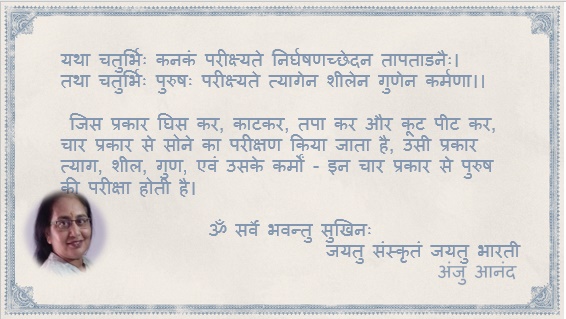 यथा चतुर्भिः कनकं परीक्ष्यते निर्घषणच्छेदन तापताडनैः।
तथा चतुर्भिः पुरुषः परीक्ष्यते त्यागेन शीलेन गुणेन कर्मणा।।
जिस प्रकार घिस कर, काटकर, तपा कर और कूट पीट कर,
चार प्रकार से सोने का परीक्षण किया जाता है, उसी प्रकार
त्याग, शील, गुण, एवं उसके कर्मों - इन चार प्रकार से पुरुष
की परीक्षा होती है।
ॐ सर्वे भवन्तु सुखिनः
जयतु संस्कृतं जयतु भारती
अंजु आनंद